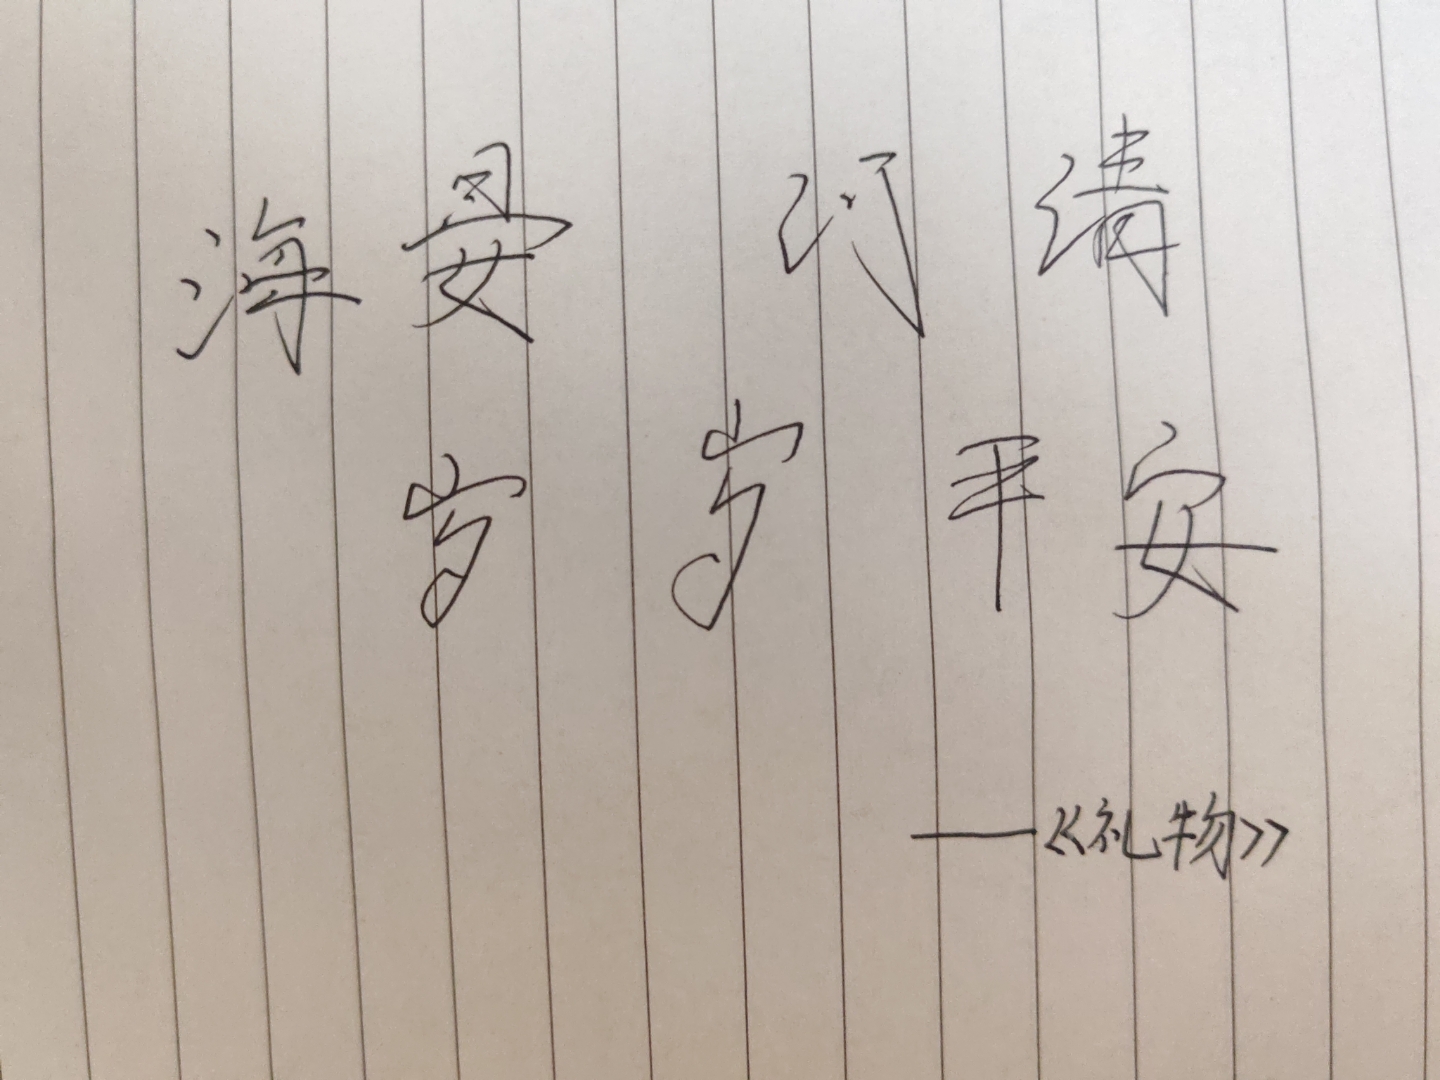 海晏河清
岁岁平安
——《礼物》